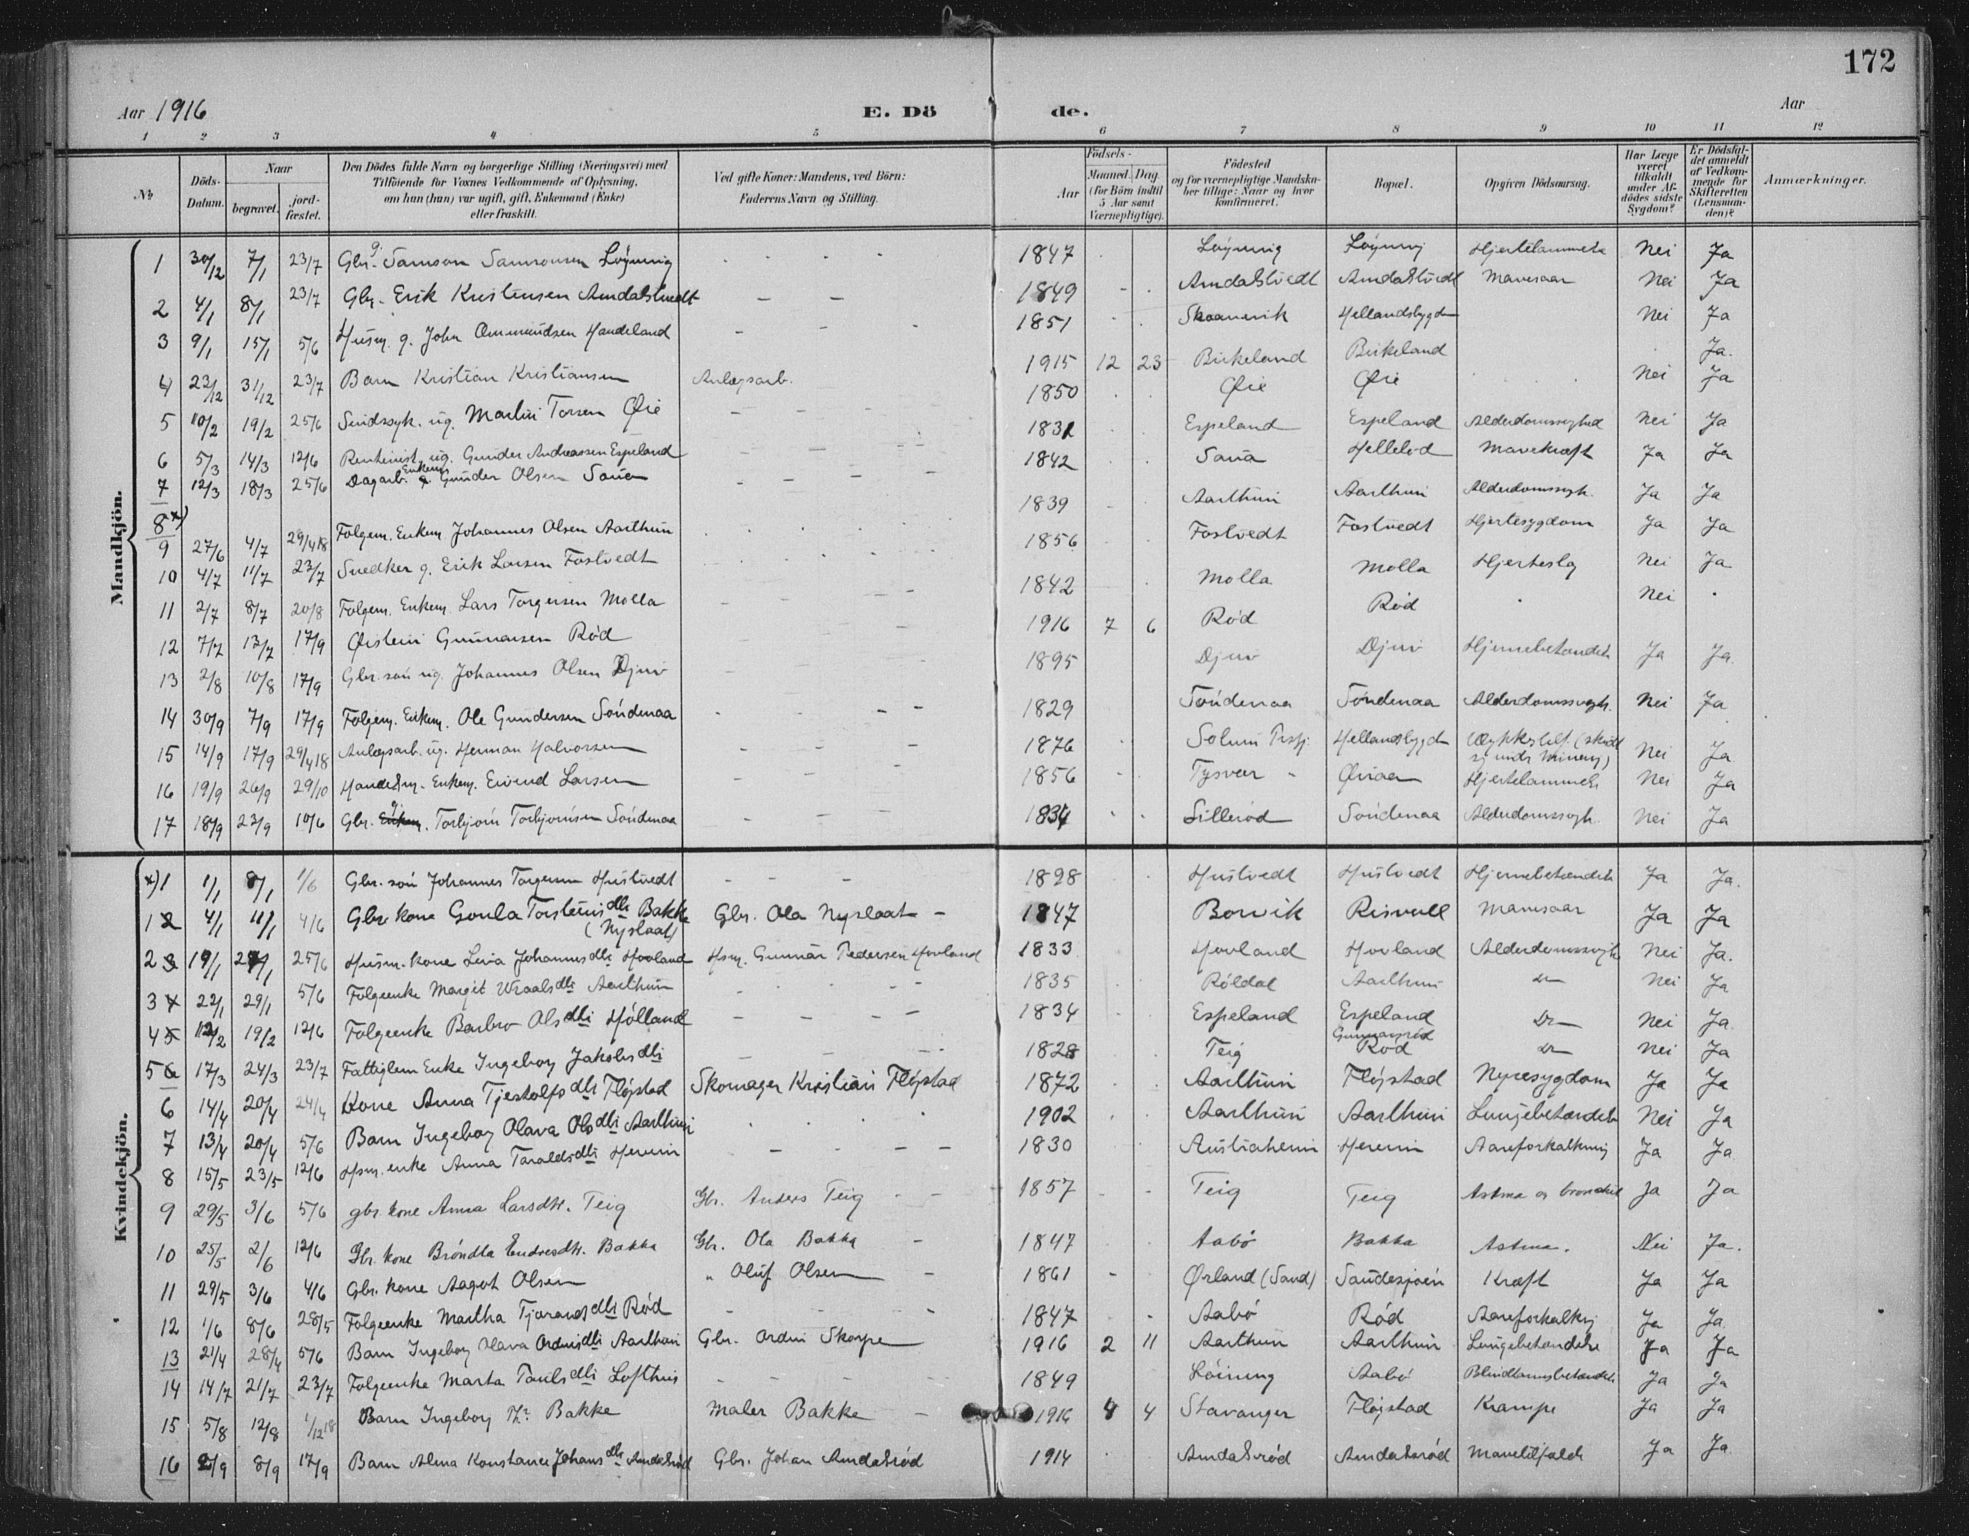 172
Aar 1916 E. Dö de. Aar
1 2 3 4 5 6 7 8 9 10 11 12
No Döds-Datum. Naar begravet. jord-fæstet. Den Dödes fulde Navn og borgerlige Stilling (Næringsvei) med Tilföiende for Voxnes Vedkommende af Oplysning, om hun (han) var ugift, gift, Enkemand (Enke) eller fraskilt. Ved gifte Koner: Mandens, ved Börn: Faderens Navn og Stilling. Födsels- Aar Maaned. Dag. (for Börn indtil 5 Aar samt Værnepligtige). Födested og for værnepligtige Mandska-ber tillige: Naar og hvor konfirmeret. Bopæl. Opgiven Dödsaarsag. Har Læge været tilkaldt under Af-dödes sidste Sygdom? Er Dödsfal-det anmeldt af Vedkom-mende for Skifteretten (Lensman-den)? Anmærkninger.
Mandkjön.
1 30/12 7/1 23/7 Gbr. g. Samson Samsonsen Løyning 1847 Løyning Løyning Hjertelammelse Nei Ja
2 4/1 8/1 23/7 Gbr. Erik Kristensen Amdalstvedt 1849 Amdalstvedt Amdalstvedt Mavesaar Nei Ja
3 9/1 15/1 5/6 Husm. g. John Ommundsen Handeland 1851 Skaanevik Hellandsbygden Nei Ja
4 23/12 31/12 23/7 Barn Kristian Kristiansen Anlægsarb. 1915 12 23 Birkeland Birkeland Ja.
5 10/2 19/2 25/6 Sindssyk. ug. Martin Torsen Øie 1850 Øie Øie Nei Ja
6 5/3 14/3 12/6 Rentenist ug. Gunder Andreassen Espeland 1831 Espeland Espeland Alderdomssvaghed Nei Ja
7 12/3 18/3 25/6 Dagarb. Enkem. Gunder Olsen Sauen 1842 Saua Mavekræft Ja Ja
8 x)
9 27/6 4/7 29/4 18 Følgem. Enkem Johannes Olsen Aarthun 1839 Aarthun Aarthun Alderdomssvgh. Ja Ja
10 4/7 11/7 23/7 Snedker g. Erik Larsen Fostvedt 1856 Fostvedt Fostvedt Hjertesygdom Ja Ja
11 2/7 8/7 20/8 Følgem. Enkem. Lars Torgersen Molla 1842 Molla Molla Hjerteslag Nei Ja
12 7/7 13/7 17/9 Øistein Gunnarsen Rød 1916 7 6 Rød Rød Nei
13 2/8 10/8 17/9 Gbr. søn ug. Johannes Olsen Djuv 1895 Djuv Djuv Hjernebetændels Ja Ja.
14 30/9 7/9 17/9 Følgem. Enkem. Ole Gundersen Søndenaa 1829 Søndenaa Søndenaa Alderdomssvgh. Nei Ja
15 14/9 17/9 29/4 18 Anlægsarb. ug. Herman Halvorsen 1876 Solum Prsgj. Hellandsbygd Nei Ja
16 19/9 26/9 29/10 Handelsm. Enkem. Eivind Larsen 1856 Tysvær Hjertelammels Nei Ja
17 18/9 23/9 10/6 Gbr. g. Torbjørn Torbjørnsen Søndenaa 1834 Lillerød Søndenaa Alderdomssvgh. Nei Ja
Kvindekjön.
x) 1 1/1 8/1 1/6 Gbr. søn Johannes Torgersen Hustvedt 1898 Hustvedt Hustvedt Hjernebetændels Ja Ja.
1 2 4/1 11/1 4/6 Gbr kone Goula Torsteins dtr Bakke (Nyslaat) Gbr. Ola Nyslaat 1847 Borvik Risvoll Mavesaar Ja Ja
2 3 19/1 27/1 25/6 Husm. kone Leiva Johannes dtr Hovland Hsm. Gunnar Pedersen Hovland 1833 Hovland Hovland Alderdomssvgh Nei Ja.
3 4 22/1 29/1 5/6 Følgeenke Margit dtr Aarthun 1835 Røldal Aarthun do Nei Ja
4 5 12/2 19/2 12/6 Følgeenke Barbro Ols dtr Hølland 1834 Espeland Espeland Do Nei Ja.
5 6 17/3 24/3 23/7 Fattiglem Enke Ingeborg Jakobs dtr 1828 Teig Gunnarsrød Rød do Nei Ja
6 14/4 20/4 24/4 Kone Anna Tjestolfs dtr Fløgstad Skomager Kristian Fløgstad 1872 Aarthun Fløgstad Nyresygdom Ja Ja
7 13/4 20/4 5/6 Barn Ingeborg Olava Ols dtr Aarthun 1902 Aarthun Aarthun Lungebetændels Nei Ja
8 15/5 23/5 12/6 Hsm. enke Anna Taralds dtr Hereim 1830 Austarheim Hereim Aareforkalkning Ja Ja
9 29/5 3/6 5/6 gbr. kone Anna Larsdtr. Teig Gbr. Anders Teig 1857 Teig Teig Astma og bronchit Ja Ja
10 25/5 2/6 12/6 Gbr. kone Brøndla Endresdtr. Bakka Gbr. Ola Bakka 1847 Aabø Bakka Astma. Nei Ja.
11 29/5 3/6 4/6 Gbr. kone Aagot Olsen " Oluf Olsen 1861 Ørland (Sand) Sandesjøen Kræft Ja Ja
12 1/6 8/6 28/5 Følgeenke Martha Tjarands dtr Rød 1847 Aabø Rød Aareforkalkng Ja Ja.
13 21/4 28/4 5/6 Barn Ingeborg Olava Ordins dtr Aarthun Gbr. Ordin Skorpe 1916 2 11 Aarthun Aarthun Lungebetændelse Ja Ja
14 14/7 21/7 23/7 Følgeenke Marta Pauls dtr Lofthus 1849 Løining Aabø Blindtarmsbetændels Ja Ja
15 5/8 12/8 1/12 18 Barn Ingeborg Bakke Maler Bakke 1916 4 4 Stavanger Fløgstad Krampe Ja Ja
16 2/9 8/9 17/9 Barn Alma Konstance Johans dtr Amdalsrød Gbr. Johan Amdalsrød 1914 Amdalsrød Amdalsrød Mavetilfælde Ja Ja